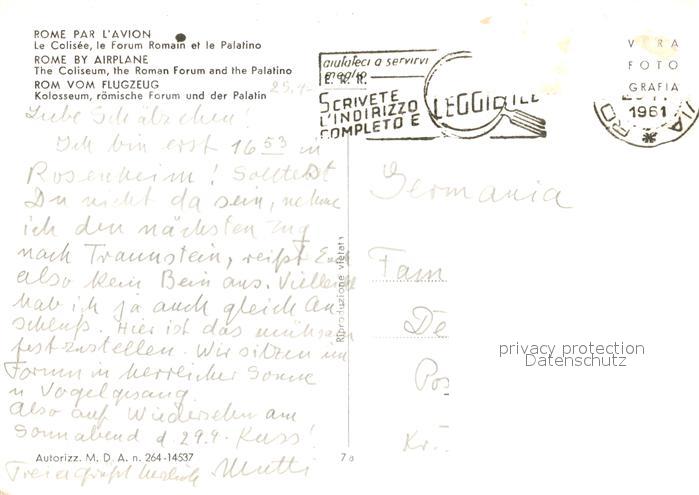 ROME PAR L'AVION
Le Colisée, le Forum Romain et le Palatino
ROME BY AIRPLANE
The Coliseum, the Roman Forum and the Palatino
ROM VOM FLUGZEUG
Kolosseum, römische Forum und der Palatin
Liebe Schätzchen!
Ich bin erst 16 53 in
Rosenheim! Solltest
Du nicht da sein, nehme
ich den nächsten Zug
nach Traunstein, reißt Euch
also kein Bein aus. Vielleicht
hab ich ja auch gleich An-
schluß. Hier ist das mühsam
festzustellen. Wir sitzen im
Forum in herrlicher Sonne
u Vogelgesang.
Also auf Wiedersehn am
Sonnabend d. 29.4. Kuss!
herzlich Mutti
Autorizz. M. D. A. n. 264-14537
7a
Riproduzione vietata
aiutateci a servirvi
meglio
SCRIVETE
L'INDIRIZZO
COMPLETO E LEGGIBILE
VERA
FOTO
GRAFIA
1961
Germania
Fam
De
Pos
Kr.
privacy protection
Datenschutz